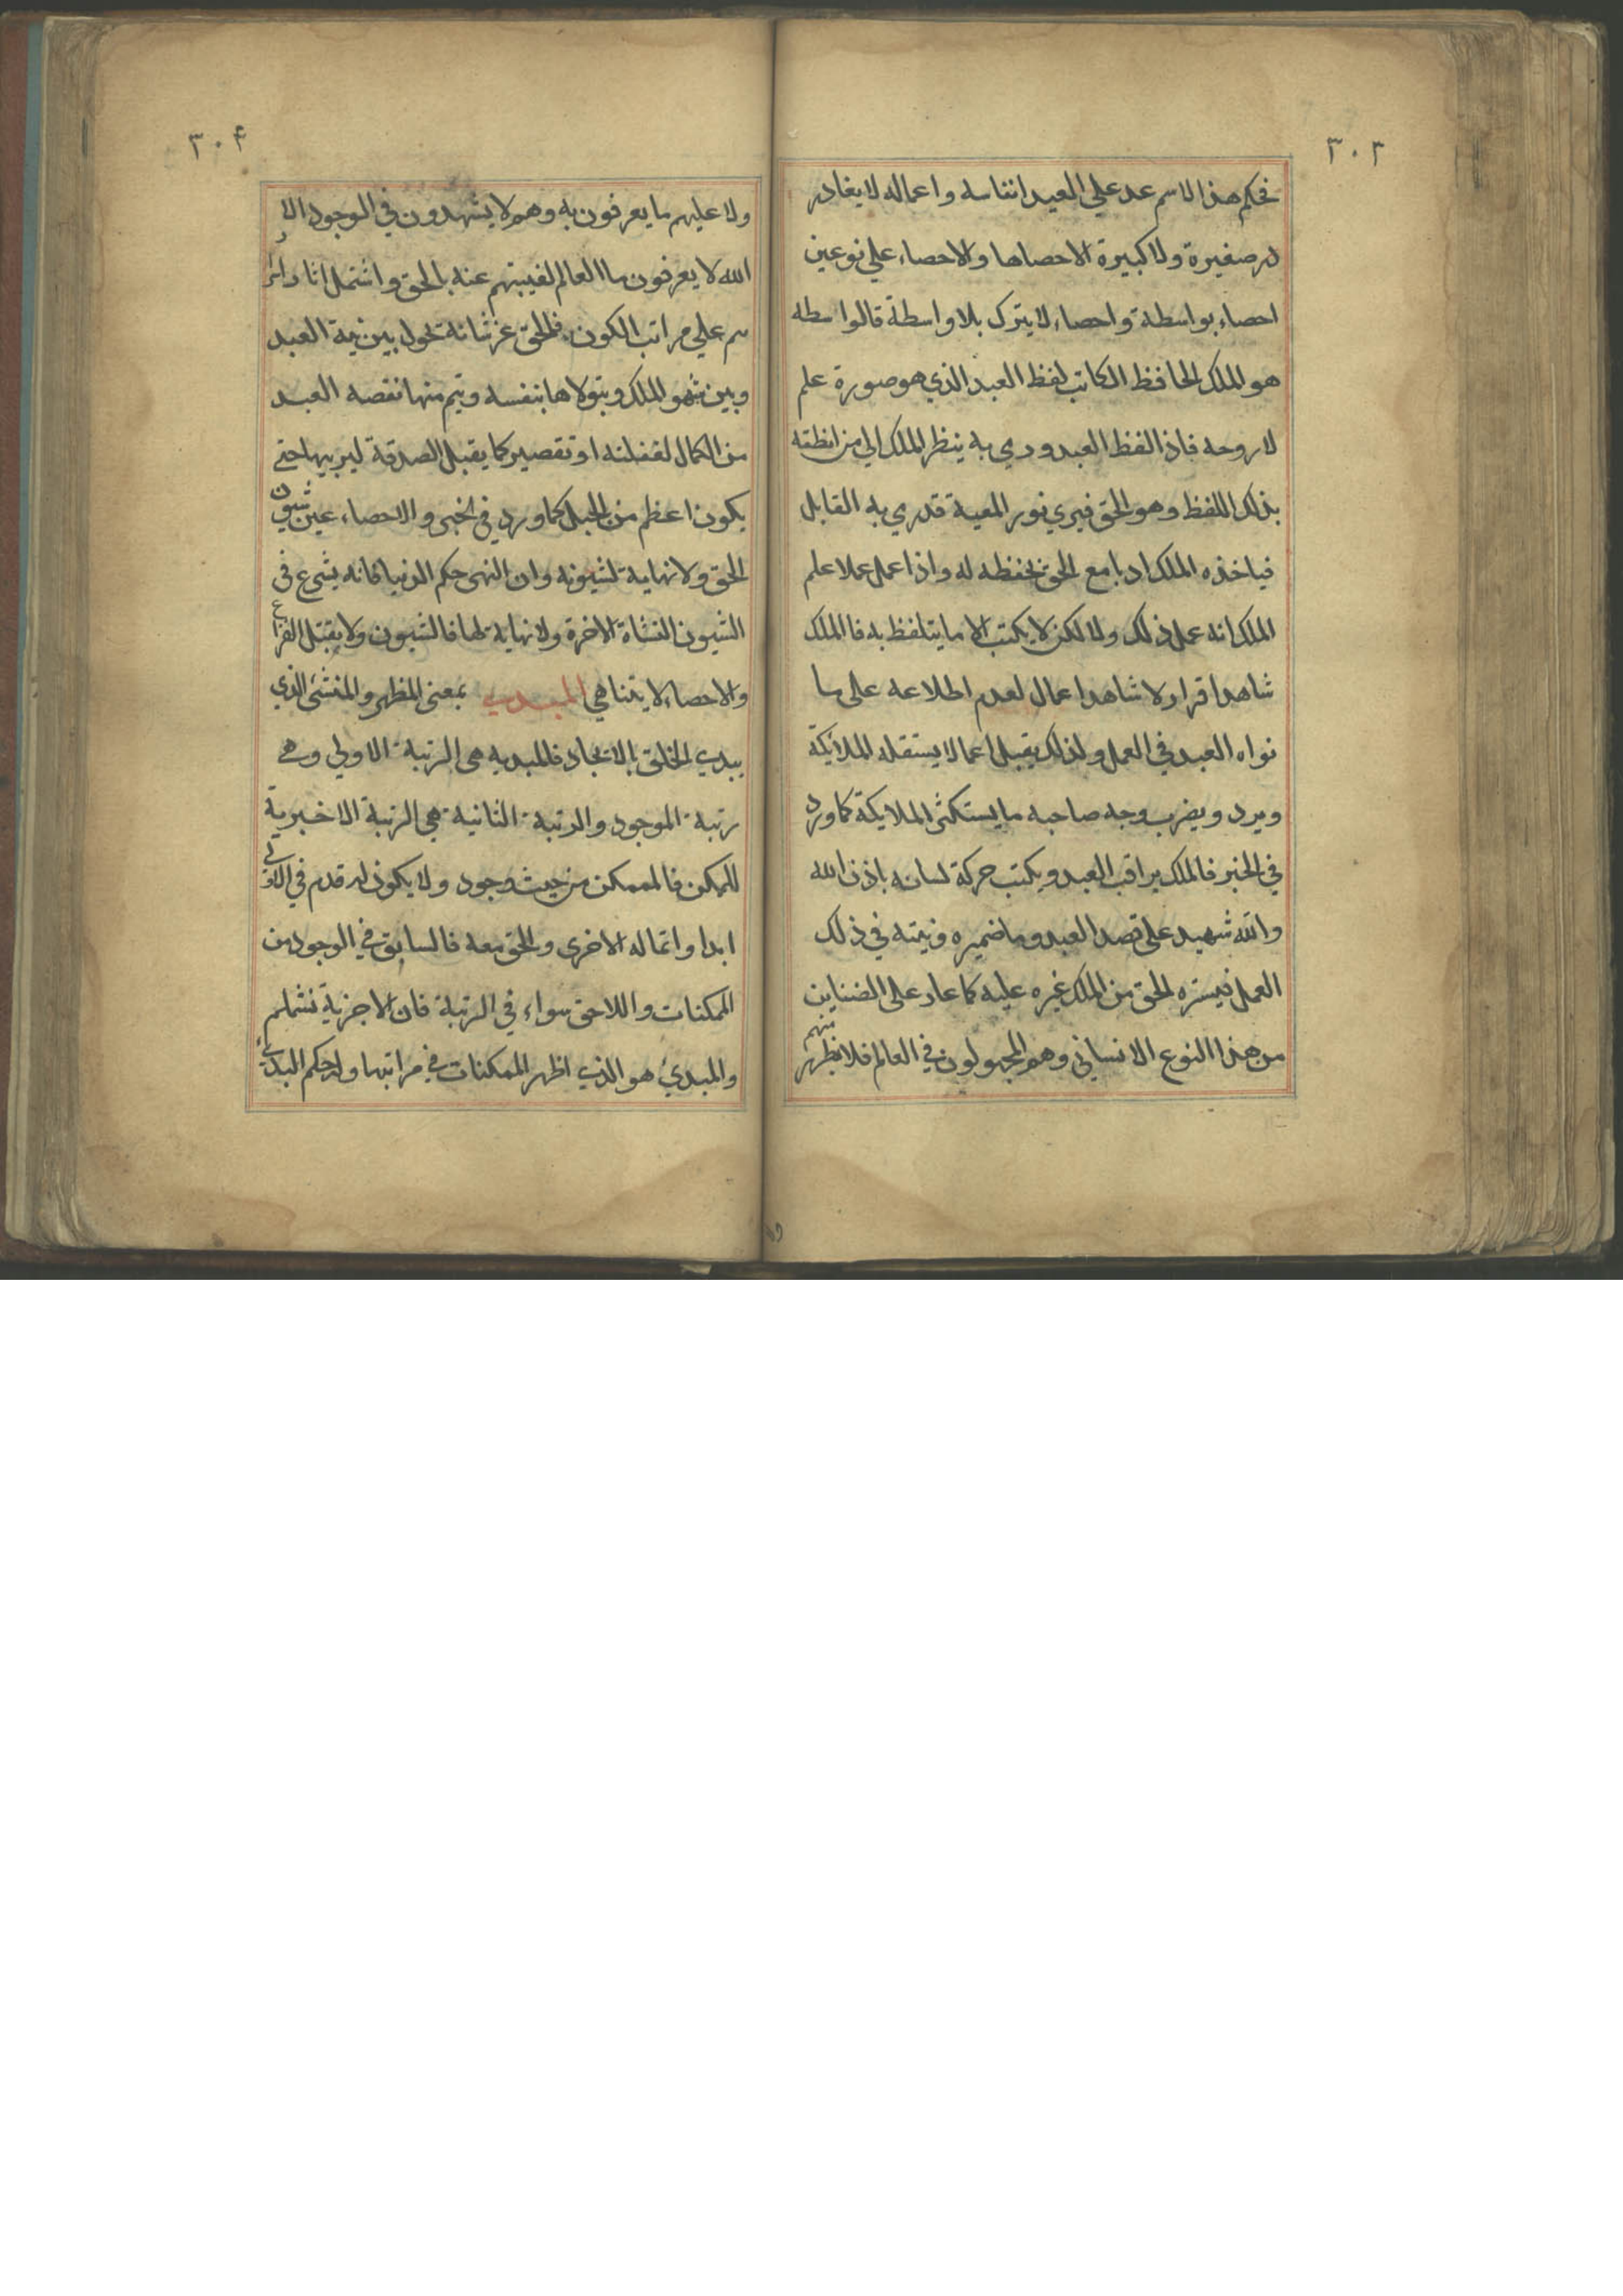 ٣٠٣
فحكم هذا الاسم عد علي العبد انفاسه واعماله لا يغادر
له صغيرة ولا كبيرة الا حصاها والاحصاء علي نوعين
احصاء بواسطة واحصاء لا يترك بلا واسطة قالواسطه
هو الملك الحافظ الكاتب لفظ العبد الذي هو صورة علم
لا روحه فاذا لفظ العبد ورمي به ينظر الملك الي من انطقه
بذلك اللفظ وهو الحق فيري نور المعية قدري به القابل
فياخذه الملك ادبا مع الحق يحفظه له واذا عمل عملا علم
الملك انه عمل ذلك ولا لكن لا يكتب الا ما يتلفظ به فالملك
شاهد اقرار لا شاهد اعمال لعدم اطلاعه على ما
نواه العبد في العمل ولذلك يقبل اعمالا يستقله الملائكة
ويرد ويضرب وجه صاحبه ما يستكثر الملايكة كما ورد
في الخبر فالملك يراقب العبد ويكتب حركة لسانه باذن الله
والله شهيد على قصد العبد وما ضميره ونيته في ذلك
العمل فيستره الحق من الملك غيره عليه كما عار على الضناين
من هذا النوع الانساني وهو المجهولون في العالم فلا يظهر منهم
٣٠۴
ولا عليهم ما يعرفون به وهم لا يشهدون في الوجود الا
الله لا يعرفون ما العالم لغيبتهم عنه بالحق واشتمل انا دائر
سم علي مراتب الكون فالحق عز شانه تحول بين نية العبد
وبين شهو الملك ويتولاها بنفسه ويتم منها نقصه العبد
من الكمال لغفلته او تقصير كما يقبل الصدقة ليربيها حتى
يكون اعظم من الجبل كما ورد في الخبر والاحصاء عين شيون
الحق ولا نهاية لشيونه وان انتهى حكم الدنيا فانه يشرع في
الشيون النشاة الاخرة ولا نهاية لها فالشيون ولا يقبل الفراغ
والاحصاء لا يتناهي المبدي بمعنى المظهر والمنشئ الذي
يبدي الخلق بالايجاد فالمبديه هي الرتبة الاولي وهي
رتبة الموجود والرتبة الثانية هي الرتبة الاخيرية
للممكن فالممكن من حيث وجود ولا يكون له قدم في الاولي
ابدا وانما له الاخرى والحق معه فالسابق في الوجود من
الممكنات واللاحق سواء في الرتبة فان الاجزية نشملهم
والمبدئ هو الذي اظهر الممكنات في مراتبها وله حكم البدء